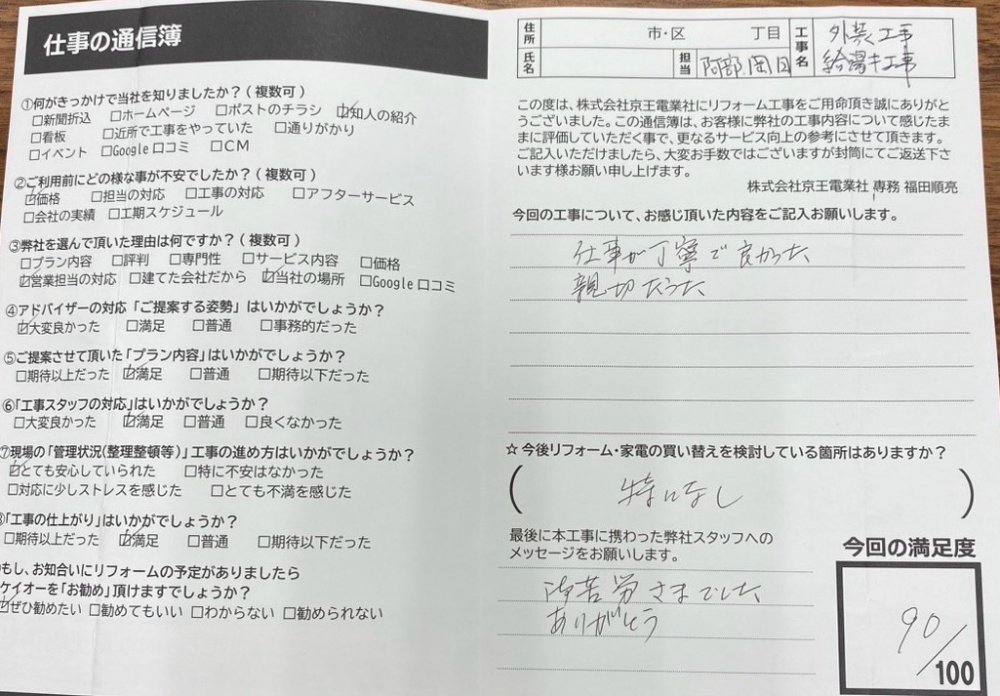 仕事の通信簿
①何がきっかけで当社を知りましたか?(複数可)
□新聞折込 □ホームページ □ポストのチラシ ☑知人の紹介
□看板 □近所で工事をやっていた □通りがかり
□イベント □Google口コミ □CM
②ご利用前にどの様な事が不安でしたか?(複数可)
☑価格 □担当の対応 □工事の対応 □アフターサービス
□会社の実績 □工期スケジュール
③弊社を選んで頂いた理由は何ですか?(複数可)
□プラン内容 □評判 □専門性 □サービス内容 □価格
☑営業担当の対応 □建てた会社だから ☑当社の場所 □Google口コミ
④アドバイザーの対応「ご提案する姿勢」はいかがでしょうか?
☑大変良かった □満足 □普通 □事務的だった
⑤ご提案させて頂いた「プラン内容」はいかがでしょうか?
□期待以上だった ☑満足 □普通 □期待以下だった
⑥「工事スタッフの対応」はいかがでしょうか?
□大変良かった ☑満足 □普通 □良くなかった
⑦現場の「管理状況(整理整頓等)」工事の進め方はいかがでしょうか?
☑とても安心していられた □特に不安はなかった
□対応に少しストレスを感じた □とても不満を感じた
「工事の仕上がり」はいかがでしょうか?
□期待以上だった ☑満足 □普通 □期待以下だった
もし、お知合いにリフォームの予定がありましたら
ケイオーを「お勧め」頂けますでしょうか?
☑ぜひ勧めたい □勧めてもいい □わからない □勧められない
住所 市・区 丁目
氏名 担当 阿部 岡田
工事名 外装工事
給湯キ工事
この度は、株式会社京王電業社にリフォーム工事をご用命頂き誠にありがと
うございました。この通信簿は、お客様に弊社の工事内容について感じたま
まに評価していただく事で、更なるサービス向上の参考にさせて頂きます。
ご記入いただけましたら、大変お手数ではございますが封筒にてご返送下さ
います様お願い申し上げます。
株式会社京王電業社 専務 福田順亮
今回の工事について、お感じ頂いた内容をご記入お願いします。
仕事が丁寧で良かった
親切だった
☆今後リフォーム・家電の買い替えを検討している箇所はありますか?
(特になし)
最後に本工事に携わった弊社スタッフへの
メッセージをお願いします。
御苦労さまでした
ありがとう
今回の満足度
90/100